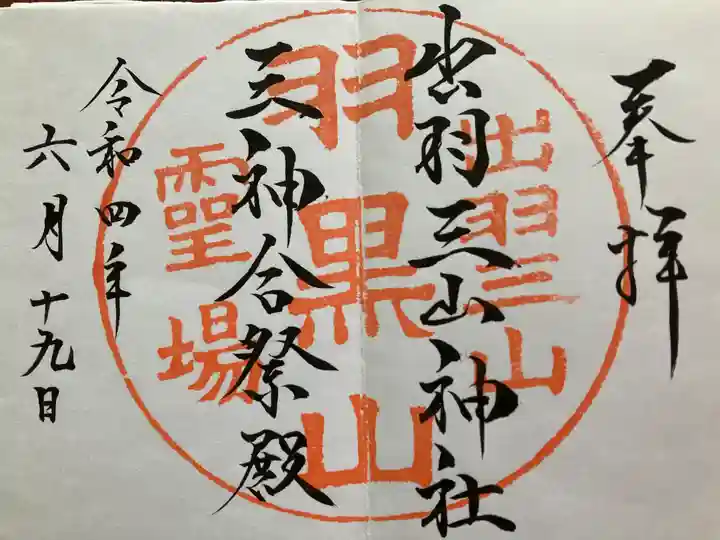 奉拝
出羽三山神社
三神合祭殿
令和四年
六月十九日
出羽三山
羽黒山
靈場